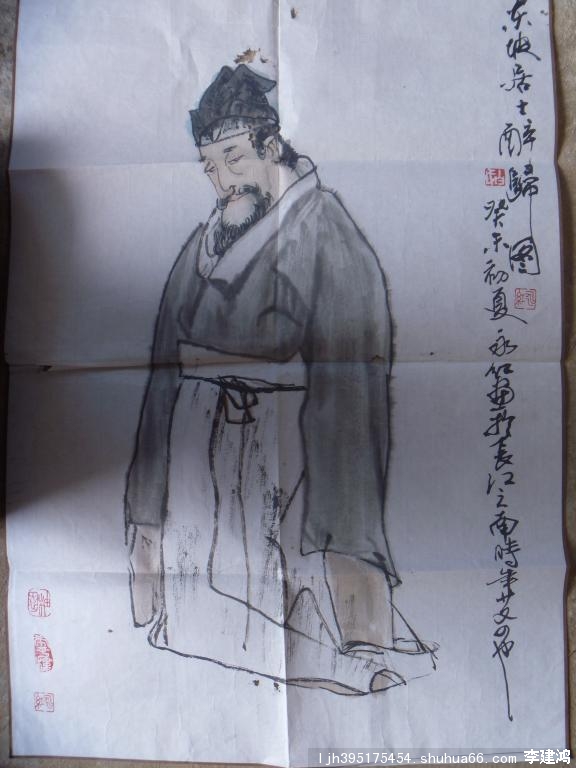 东坡居士醉歸图
癸未初夏永红画於長江之南時年廿又四也
ljh395175454  shuhua66.com 李建鸿